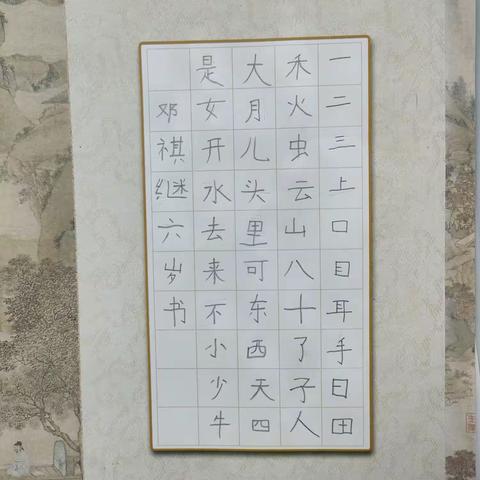 一二三上口目耳手日田
禾火虫云山八十了子人
大月儿头里可东西天四
是女开水去来不小少牛
邓祺继六岁书